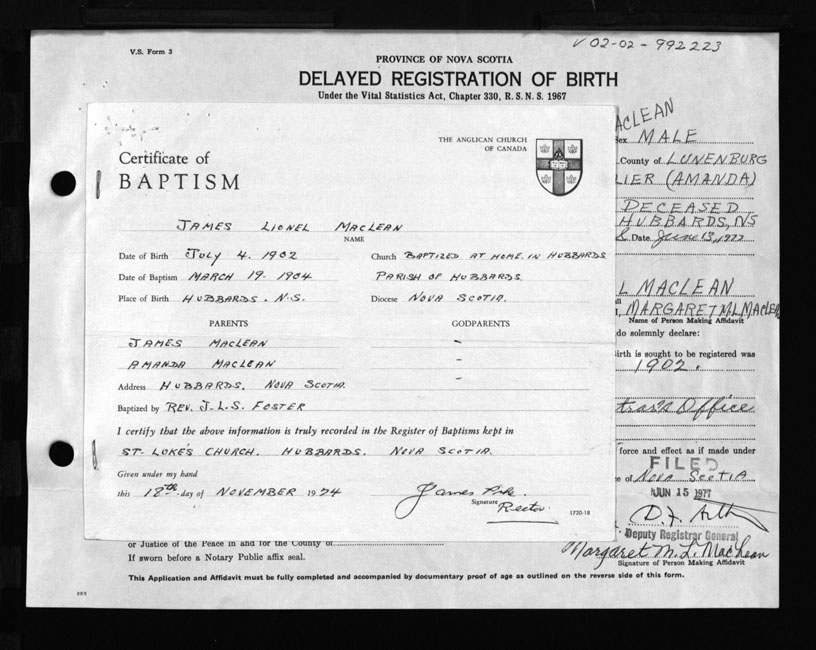 V.S. Form 3
V 02-02-992223
PROVINCE OF NOVA SCOTIA
DELAYED REGISTRATION OF BIRTH
Under the Vital Statistics Act, Chapter 330, R.S.N.S. 1967
ACLEAN
Sex MALE
County of LUNENBURG
LIER (AMANDA)
DECEASED
HUBBARDS, NS
Date June 13, 1977
L MACLEAN
MARGARET M.L. MACLEA
Name of Person Making Affidavit
do solemnly declare:
irth is sought to be registered was
1902.
trar's Office
force and effect as if made under
FILED
e of NOVA SCOTIA
JUN 15 1977
Deputy Registrar General
Margaret M. L. MacLean
Signature of Person Making Affidavit
THE ANGLICAN CHURCH
OF CANADA
Certificate of
BAPTISM
JAMES LIONEL MACLEAN
NAME
Date of Birth JULY 4. 1902 Church BAPTIZED AT HOME. IN HUBBARDS
Date of Baptism MARCH 19. 1904 PARISH OF HUBBARDS
Place of Birth HUBBARDS. N.S. Diocese NOVA SCOTIA.
PARENTS GODPARENTS
JAMES MACLEAN -
AMANDA MACLEAN -
Address HUBBARDS, NOVA SCOTIA. -
Baptized by REV. J.L.S. FOSTER
I certify that the above information is truly recorded in the Register of Baptisms kept in
ST. LUKE'S CHURCH. HUBBARDS. NOVA SCOTIA.
Given under my hand
this day of NOVEMBER 1974 James
Signature
Rector
1720-18
or Justice of the Peace in and for the County of
If sworn before a Notary Public affix seal.
This Application and Affidavit must be fully completed and accompanied by documentary proof of age as outlined on the reverse side of this form.